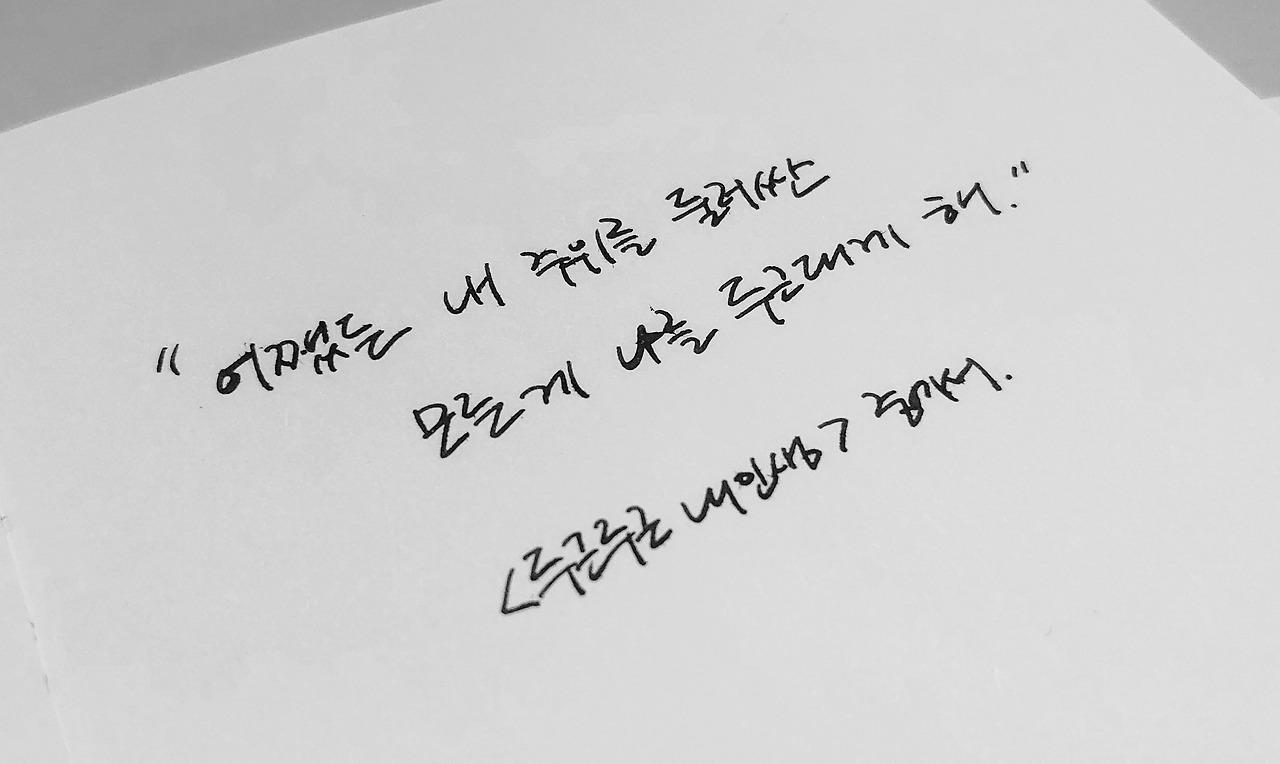 "어쨌든 내 주위를 둘러싼
모든 게 나를 두근대게 해."
<두근두근 내 인생> 중에서.